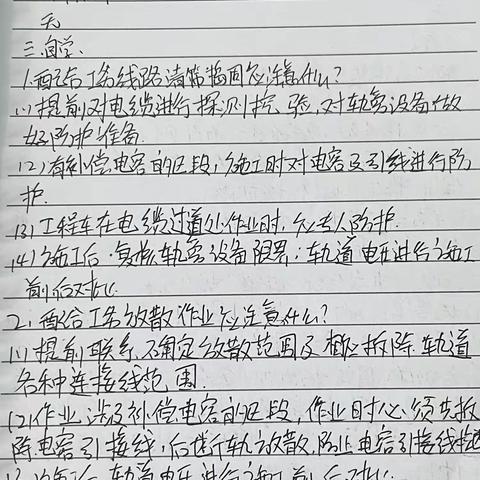 无
三.自学.
1.配合工务线路清筛捣固应注意什么?
(1)提前对电缆进行探测挖验,对轨旁设备做
好防护准备.
(2)有补偿电容的区段,施工时对电容及引线进行防
护.
(3)工程车在电缆过道处作业时,应专人防护.
(4)施工后,复核轨旁设备限界;轨道电压进行施工
前后对比.
2.配合工务放散作业应注意什么?
(1)提前联系,确定放散范围及相应拆除轨道
各种连接线范围.
(2)作业涉及补偿电容的区段,作业时必须先拆
除电容引接线,后断轨放散,防止电容引接线
施工后,轨道电压进行施工前后对比.